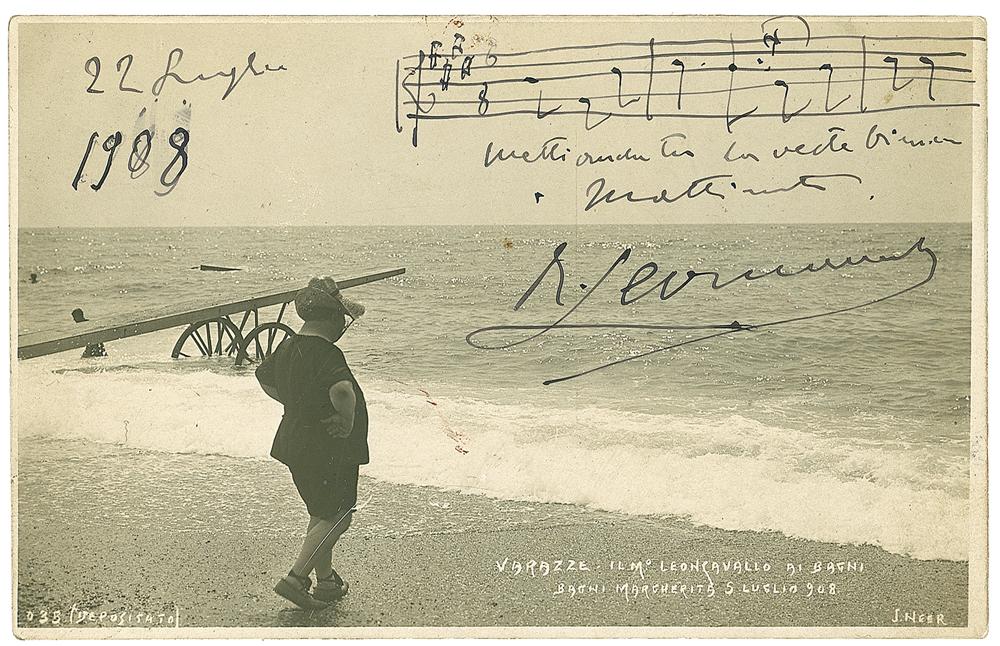 22 Luglio
1908
6
8
Metti anche tu la veste bianca
Mattinata.
R. Leoncavallo
VARAZZE - IL Mº LEONCAVALLO AI BAGNI
BAGNI MARGHERITA 5 LUGLIO 908
038 (DEPOSITATO)
J. NEER